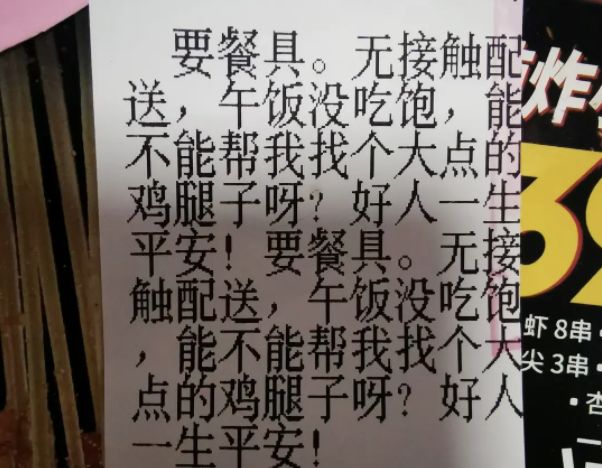 要餐具。无接触配
送，午饭没吃饱，能
不能帮我找个大点的
鸡腿子呀？好人一生
平安！要餐具。无接
触配送，午饭没吃饱
，能不能帮我找个大
点的鸡腿子呀？好人
一生平安！
炸
39
虾 8串·
尖 3串·
·杏